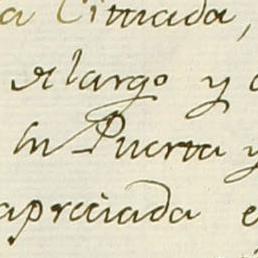 a Citiuada,
de largo y
su Puerta y
apreciada e